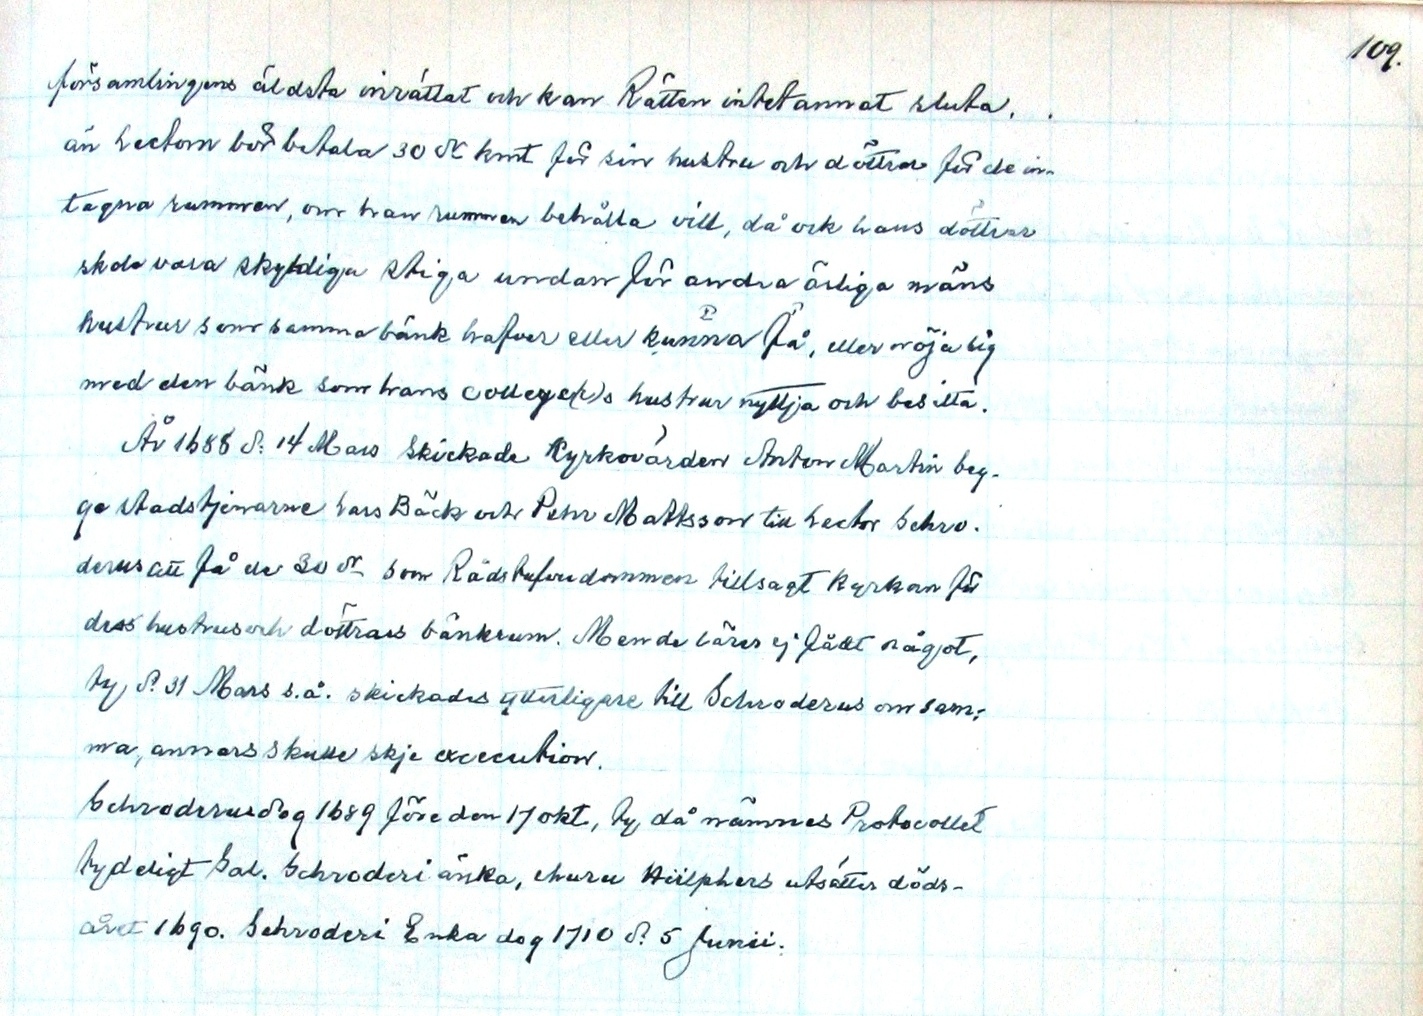 109.
församlingens äldsta inrättat och kan Rätten intet annat sluta,
än Lectorn bör betala 30 dr kmt för sin hustru och döttrar för de in-
tagna rummen, om han rummen behålla vill, då ock hans döttrar
skola vara skyldiga stiga undan för andra ärliga mäns
hustrur som samma bänk hafver eller kunna få, eller nöja sig
med den bänk som hans college(r)s hustrur nyttja och besitta.
År 1688 d. 14 Mars skickade Kyrkovärden Anton Martin beg-
ge stadstjenarne Lars Bäck och Pehr Matsson till Lector Schro-
derus att få de 30 dr som Rådstufvudommen tillsagt kyrkan för
dess hustrus och döttrars bänkrum. Men de lärer ej fådt något,
ty d. 31 Mars s.å. skickades ytterligare till Schroderus om sam-
ma, annars skulle skje execution.
Schroderus dog 1689 före den 17 okt, ty då nämnes Protocollet
tydeligt Sal. Schroderi änka, ehuru Hülphers utsätter döds-
året 1690. Schroderi Enka dog 1710 d. 5 Junii.